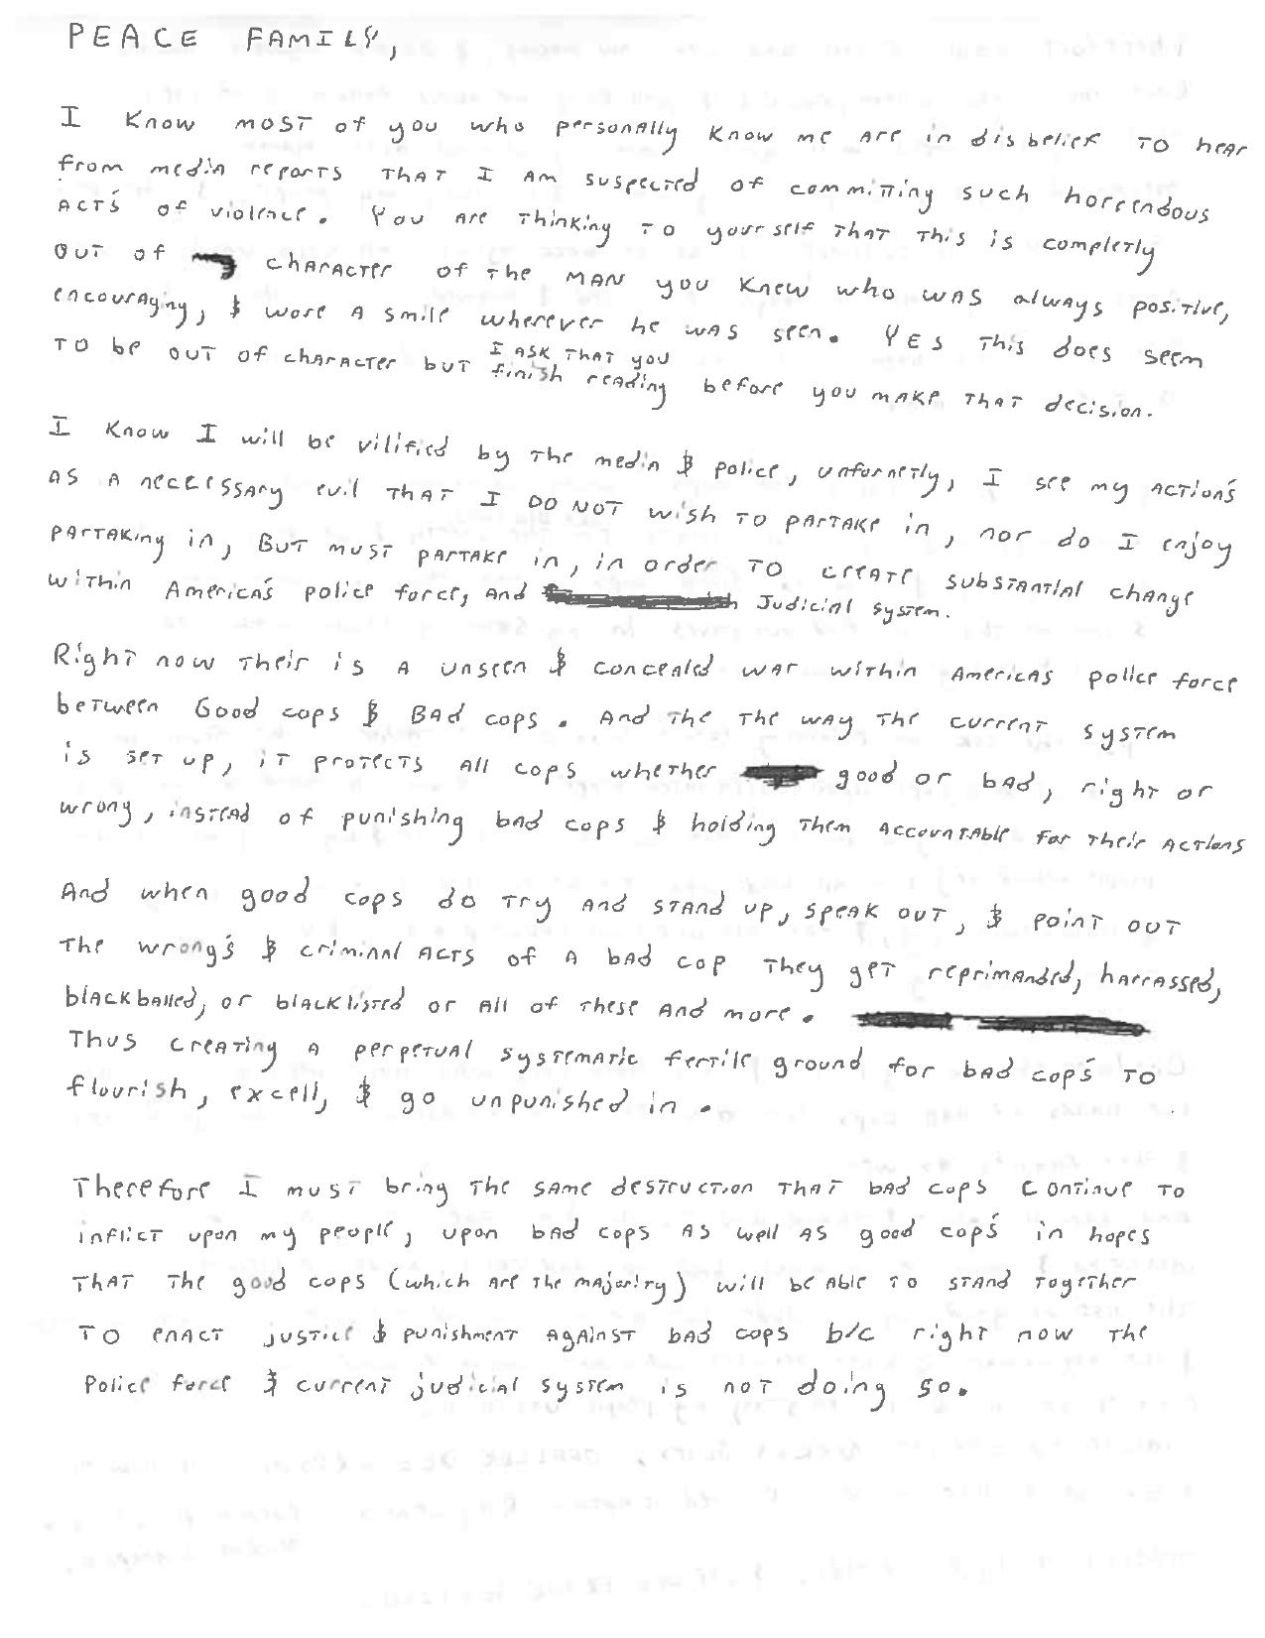 PEACE FAMILY,
I Know MOST of you who personally Know me ARE in disbelief TO hear
from media reports THAT I AM suspected of commiting such horrendous
ACT'S of violence. You ARE Thinking TO yourself THAT This is completly
OUT of character of The MAN you Knew who was always positive,
encouraging, & wore A smile wherever he was seen. YES This does seem
TO be out of character but I ASK THAT you
finish reading before you MAKE THAT decision.
I Know I will be vilified by The media & police, unfornetly, I see my ACTION'S
AS A neccessary evil THAT I DO NOT wish TO PARTAKE in, nor do I enjoy
PARTAKing in, BUT must PARTAKE in, in order TO CREATE SUBSTANTIAL change
within America's police force, And Judicial system.
Right now Their is A unseen & concealed war within America's police force
between Good cops & BAd cops. And The The way The current system
is set up, iT protects All cops whether good or bad, right or
wrong, instead of punishing bad cops & holding Them Accountable for Their Actions
And when good cops do Try And STAND up, SPEAK OUT, & POINT OUT
The wrong's & criminal ACTS of A bad cop They get reprimanded, harrassed,
blackballed, or blacklisted or All of These And more.
Thus creating A perpetual systematic fertile ground for bad cop's TO
flourish, excell, & go unpunished in.
Therefore I must bring The same destruction THAT bad cops continue TO
inflict upon my people, upon bad cops AS well AS good cop's in hopes
THAT The good cops (which ARE The majority) will be Able TO STAND Together
TO ENACT justice & punishment AGAINST bad cops b/c right now The
Police force & current judicial system is not doing so.